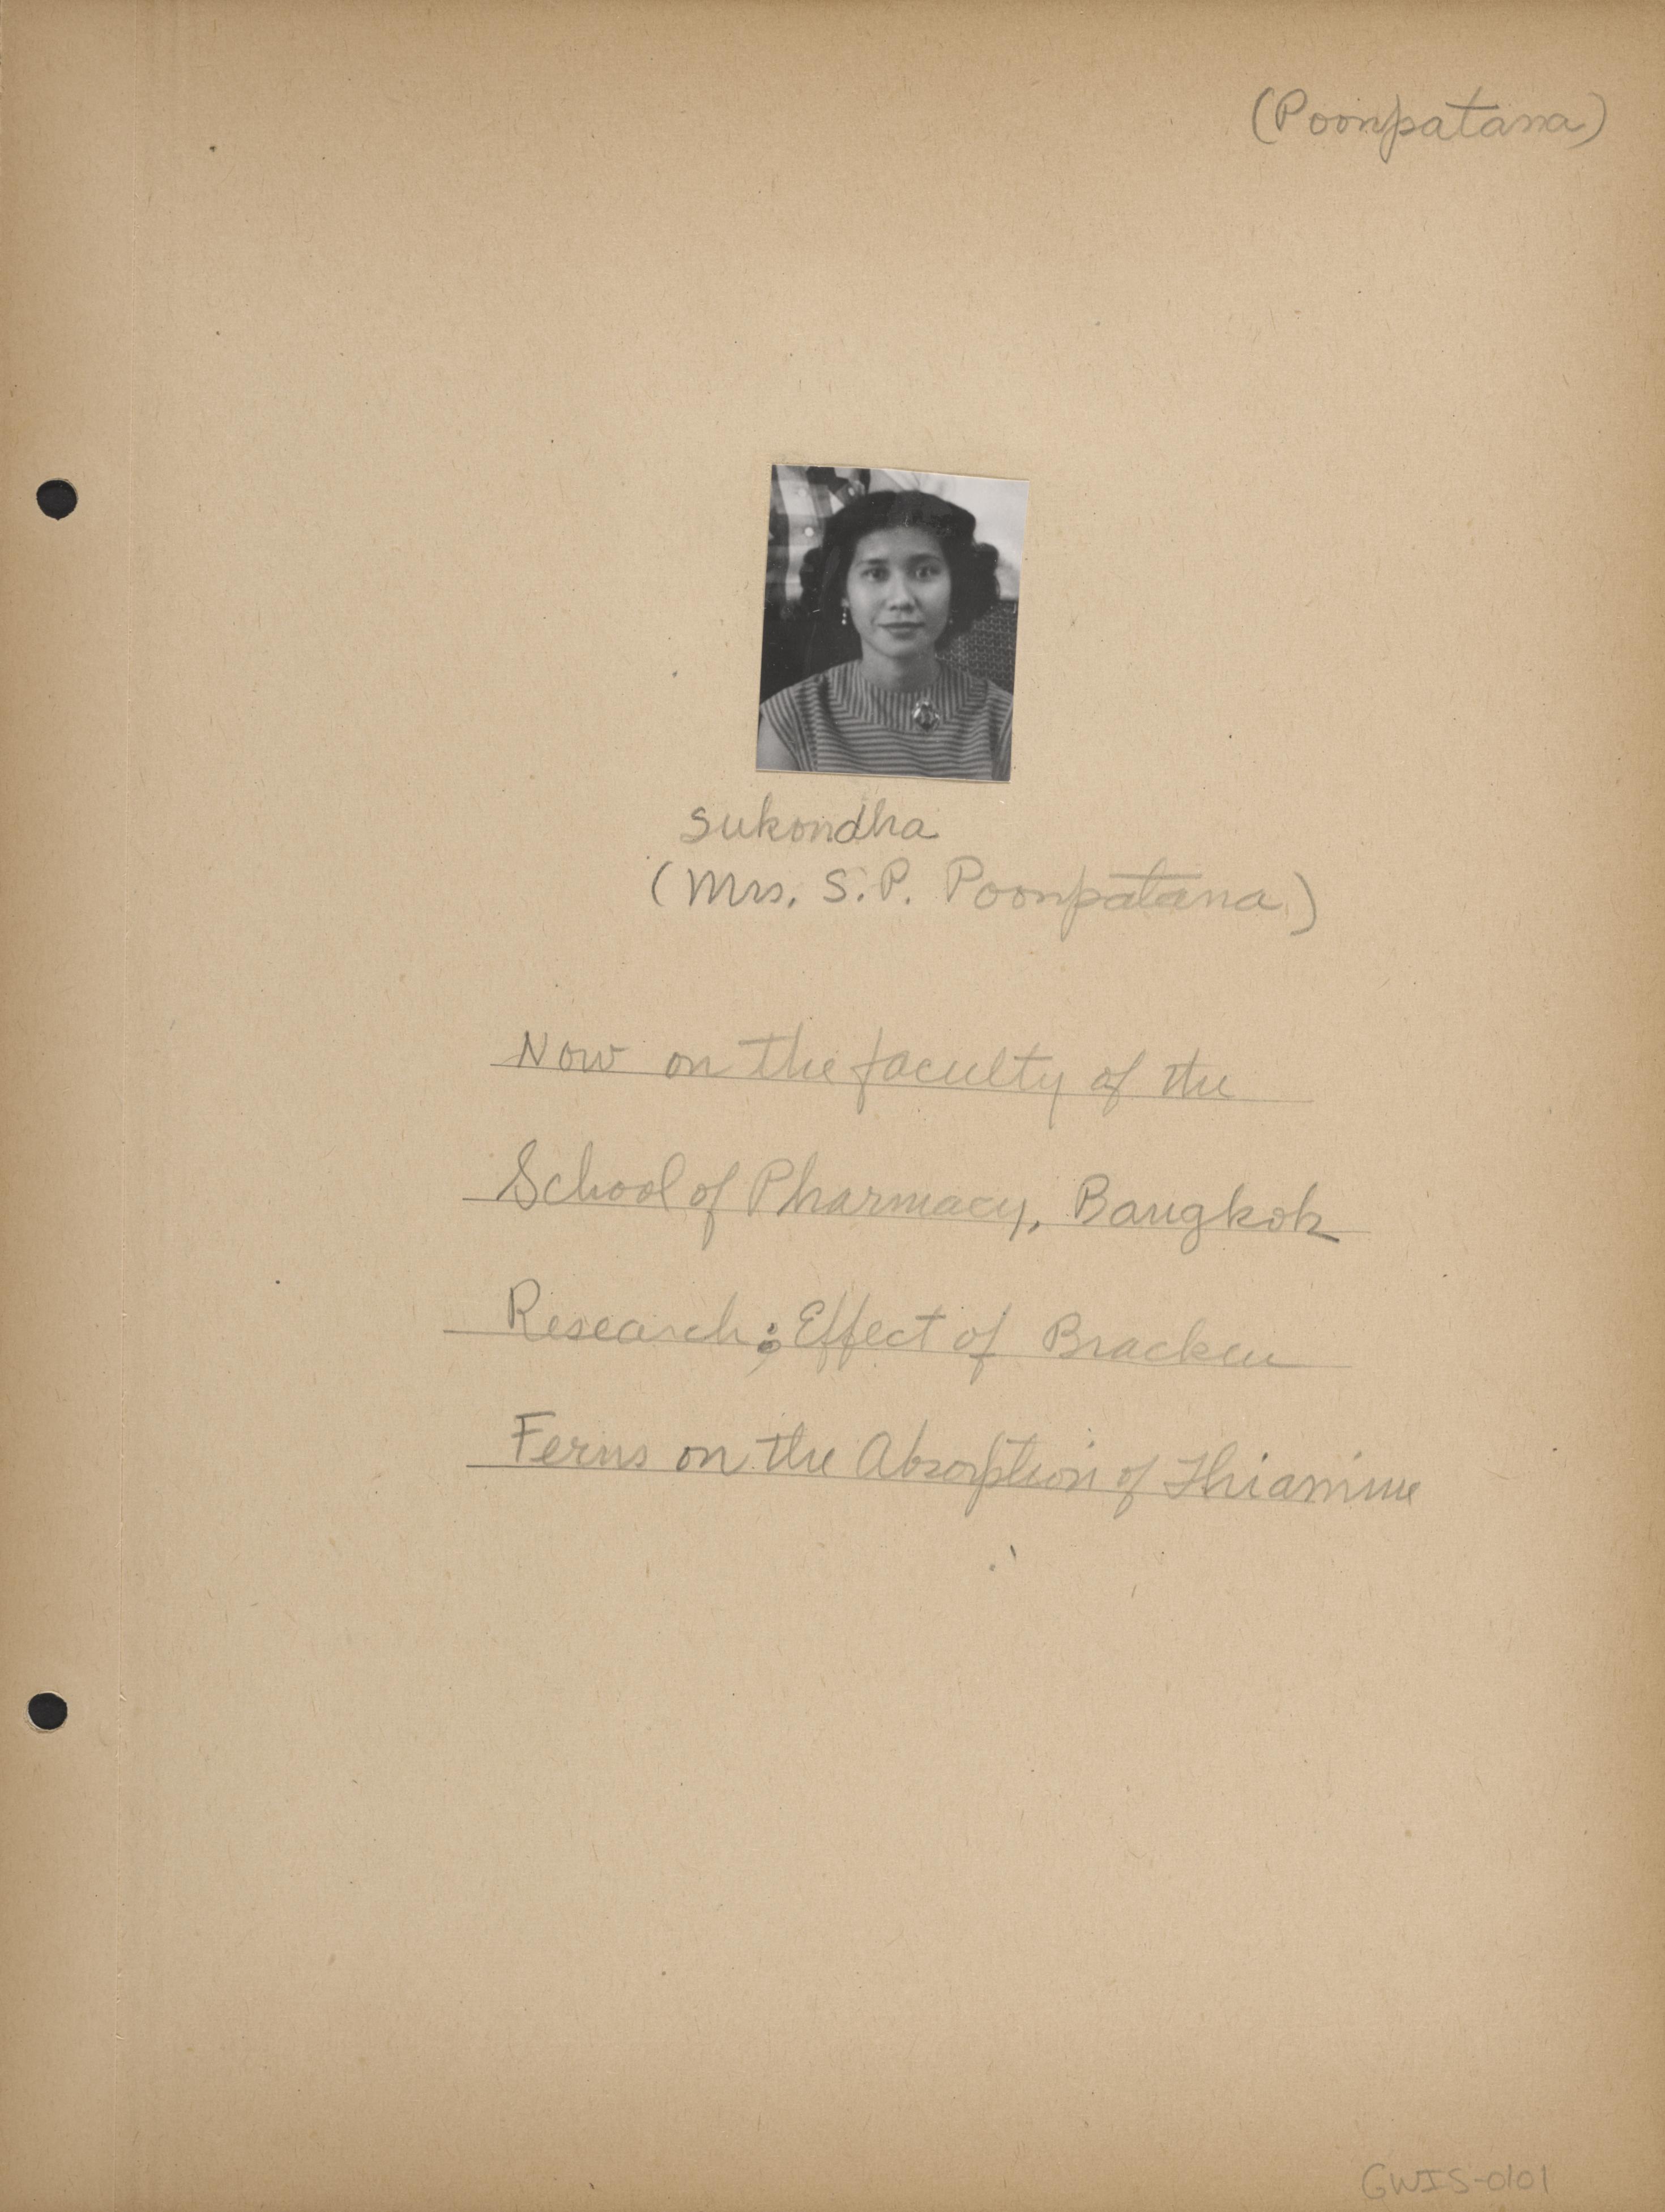 (Poonpatana)
Sukondha
(Mrs. S.P. Poonpatana)
Now on the faculty of the
School of Pharmacy, Bangkok
Research; Effect of Bracken
Ferns on the Absorption of Thiamine
GWIS-0101